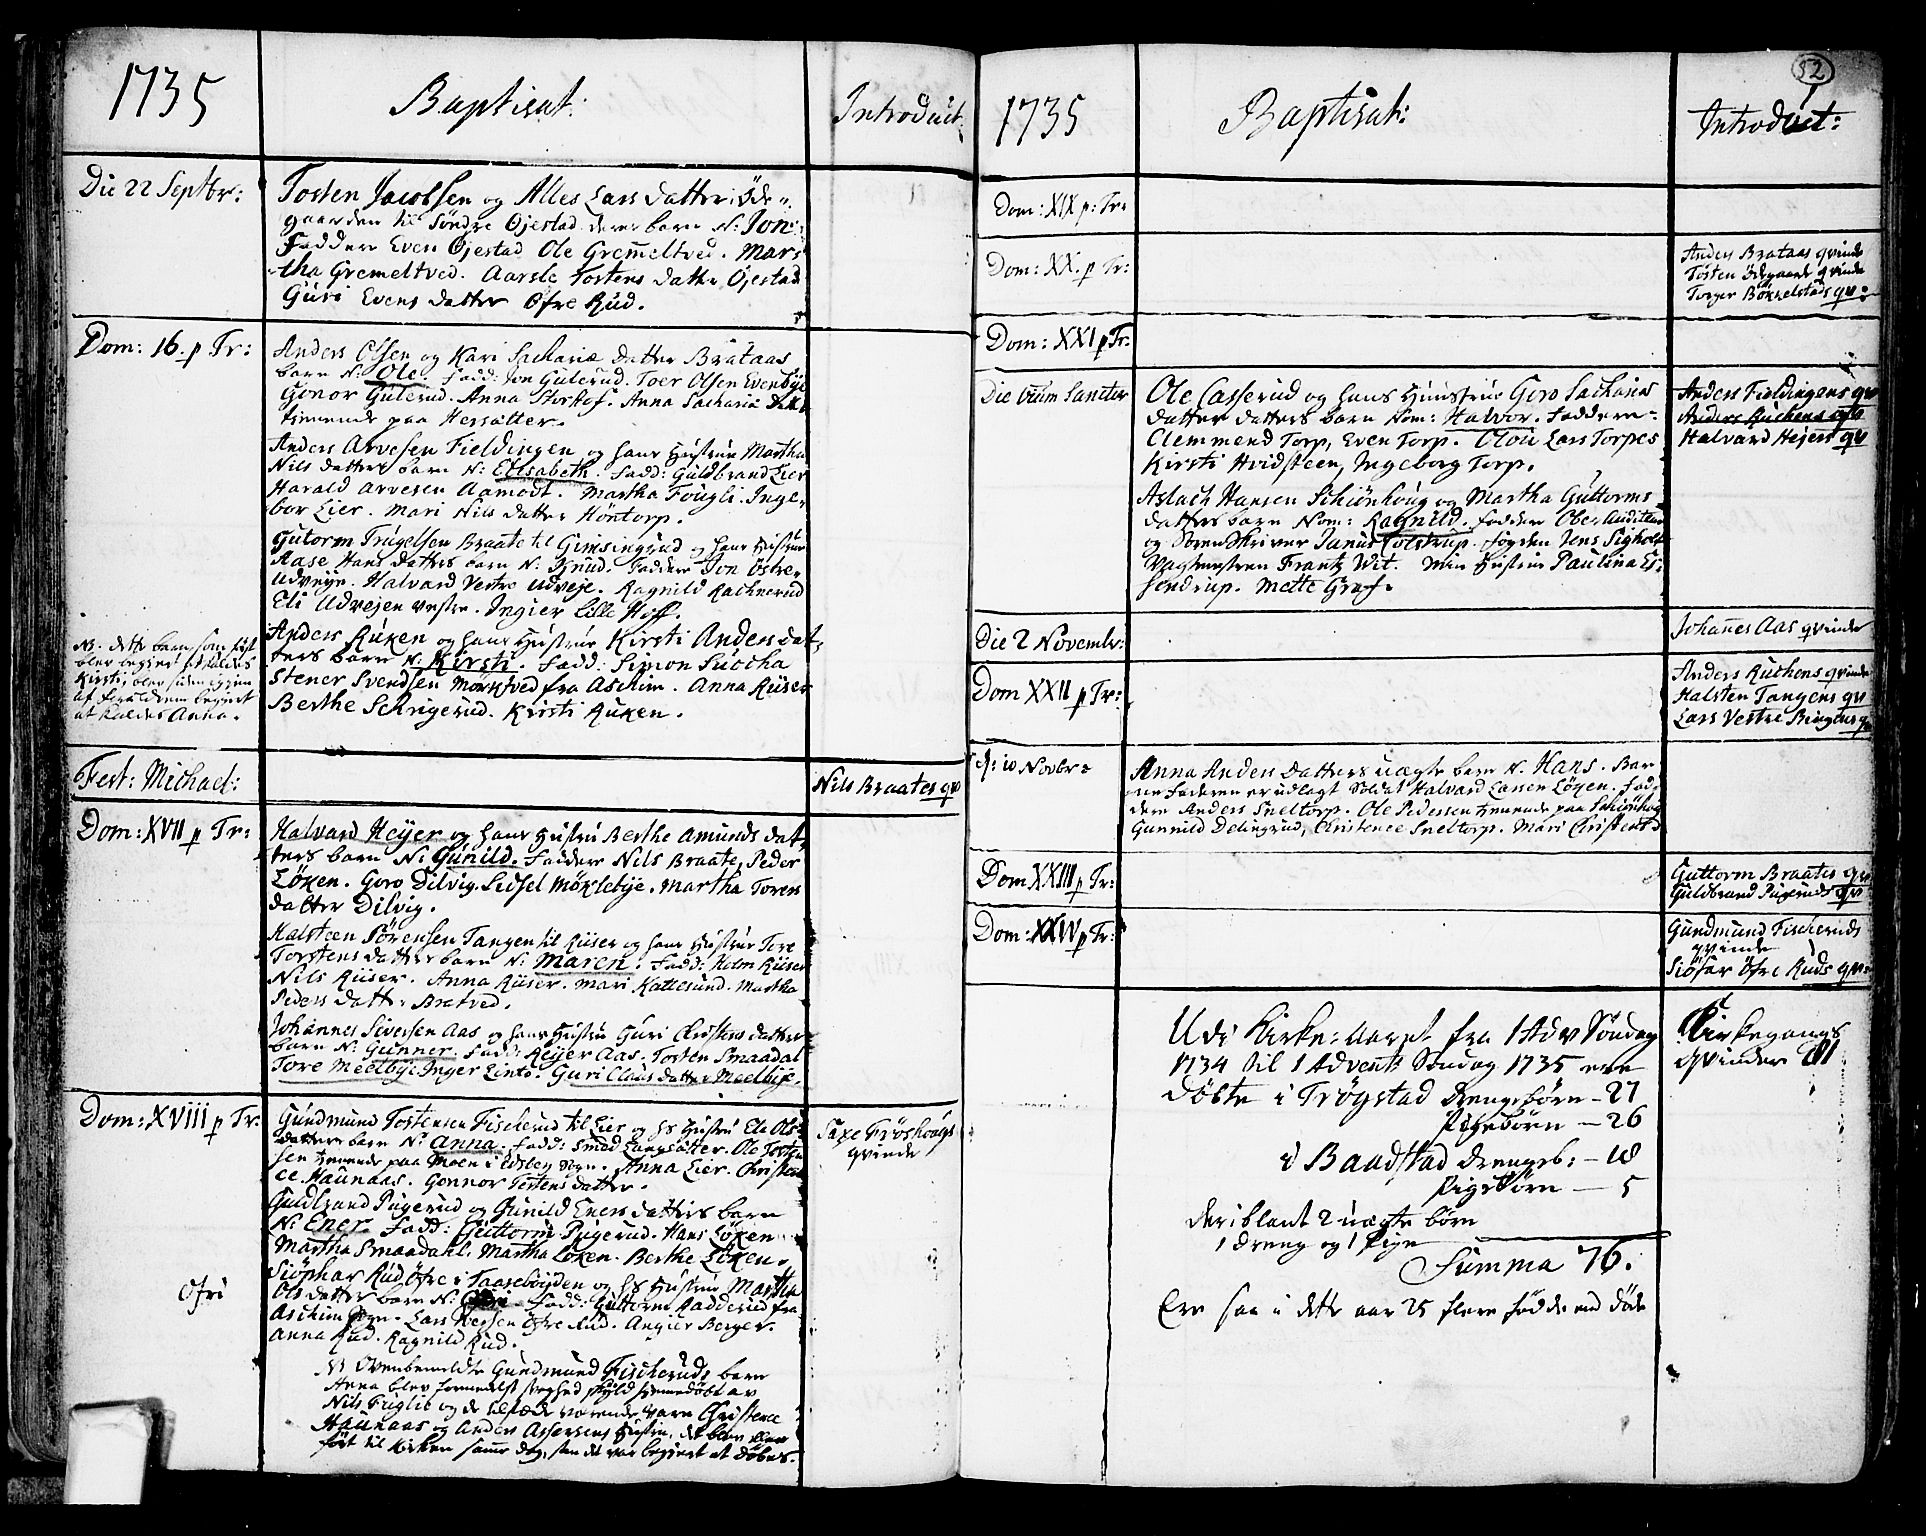 1735
Baptisat:
Introduct
Die 22 Septbr:
Tosten Jacobsen og Alles Lars datter: Öde-
gaarden til Söndre Öjestad deres barn N: Jon:
Faddere Even Öjestad Ole Gremeltved. Mar-
tha Gremeltved. Aarsle Tostens datter Öjestad
Guri Evens datter Öfre Rud.
Dom: 16. p Tr:
Anders Olsen og Kari Sachariæ datter Brataas
barn N: Ole. Fadd: Jon Guterud. Toer Olsen Evenbÿe
Gonor Guterud. Anna Storhof. Anna Sachariæ datt:
tienende paa Hersætter.
Anders Arvesen Fieldingen og hans Hustrue Martha
Nils datters barn N: Elisabeth. Fadd: Guldbrand Lier
Harald Arvesen Aamodt. Martha Fougli. Inge-
bor Lier. Mari Nils datter Höntorp.
Gutorm Trugelsen Braate til Gimsingrud og hans Hustrue
Aase Hans datters barn N: Knud. Faddere Jon Östre
Udveye. Halvard Vestre Udveje. Ragnild Rachnerud
Eli Udvejen vestre. Ingier Lille Hoff.
Anders Ruken og hans Hustrue Kirsti Anders dat-
ters barn N: Kirsti. Fadd: Simon Suocha
Stener Svendsen Mörktved fra Aschim. Anna Riiser
Berthe Schrigerud. Kirsti Ruken.
NB. dette barn som först
blev begiert at kaldes
Kirsti, blev siden igien
af Forældrene begiert
at kaldes Anna.
Fest: Michael:
Nils Braates qv
Dom: XVII p Tr:
Halvard Heyer og hans Hustru Berthe Amunds dat-
ters barn N: Gunild. Faddere Nils Braate, Peder
Löken. Goro Dilvig. Sidsel Möklebye. Martha Torens
datter Dilvig.
Halsteen Sörensen Tangen til Riiser og hans Hustrue Tore
Torstens datters barn N: Maren. Fadd: Holm Riiser
Nils Riiser. Anna Riiser. Mari Kattesund. Martha
Peders datter Bratved.
Johannes Siversen Aas og hans Hustru Guri Christens datters
barn N: Gunner. Fadd: Reyer Aas. Tosten Smaadal
Tore Meelbÿe Inger Linto. Guri Claus datter Meelbÿe.
Dom: XVIII p Tr:
Gundmund Tostensen Fischerud til Lier og hs Hustru Ele Ols
datters barn N: Anna. Fadd: Smed Langsætter. Ole Tosten
sen tienende paa Moen i Edsberg Sogn. Anna Lier. Christen
ce Haunaas. Gonnor Tostens datter.
Guldbrand Pugerud og Gunild Eners datters barn
N: Ener. Fadd: Guttorm Pugerud. Hans Löken
Martha Smaadahl. Martha Löken. Berthe Löken.
Siöphar Rud Öfre i Taaseböyden og hs Hustrue Martha
Ols datters barn N: Fadd: Guttorm Radderud fra
Aschim Sogn. Lars Iversen Öfre Rud. Angier Berger.
Anna Rud. Ragnild Rud.
Ofri
NB Ovenbemeldte Gundmund Fischeruds barn
Anna blev formedelst svaghed skyld hiemmedöbt av
Nils Fuglie og de tilstæde værende vare Christence
Haunaas og Anders Assersens Hustru, det blev
fört til Kirken samme dag, som det var begiert at döbes.
Saxe Tröshougs
qvinde
52
1735
Baptisat:
Introduct:
Dom: XIX p: Tr:
Dom: XX. p Tr:
Anders Brataas qvinde
Tosten Ödegaards qvinde
Torger Bökkelstads qv:
Dom: XXI p Tr:
Die Omnium Sanctor
Ole Casserud og hans Hustrue Goro Sacharias
datter datters barn Nom: Halvor. Faddere:
Clemmend Torp, Even Torp. Olou Lars Torpes
Kirsti Hvidsteen, Ingeborg Torp.
Anders Fieldingens qv
Anders Ruchens qv
Halvard Hejers qv
Aslach Hansen Schiönhoug og Martha Guttorms
datters barn Nom: Ragnild. Faddere Ober Auditeur
og Sorenskriver Janus Colstrup. Fogden Jens Sigholt
Vagtmesteren Frantz Wit. Min Hustrue Paulina Es-
sendrup. Mette Graf.
Die 2 Novembr:
Johannes Aas qvinde
Dom XXII p Tr:
Anders Ruchens qvinde
Halsten Tangens qv
Lars Vestre Bingens qv
d: 10 Novbr:
Anna Anders datters uægte barn N. Hans. Bar-
nefaderen er udlagt Soldat Halvard Larsen Löken. Fad-
dere Anders Sneltorp. Ole Pedersen tienende paa Schiönhog
Gunnild Delingrud, Christence Sneltorp. Mari Christens:
Dom XXIII p Tr:
Guttorm Braates qv
Guldbrand Pugeruds qv
Dom: XXIV p Tr:
Gundmund Fischeruds
qvinde
Siöfar Öfre Ruds qv:
Udi Kirke: Aaret fra 1 Adv Söndag
1734 til 1 Advents Söndag 1735 ere
döbte i Trögstad Drengebörn – 27
Pigebörn – 26
i Baadstad Drengeb: – 18
Pigebörn – 5
Deriblant 2 uægte börn
1 dreng og 1 Pige
Summa 76.
Ere saa i dette aar 25 flere födde end döde
Kirkegangs
qvinder